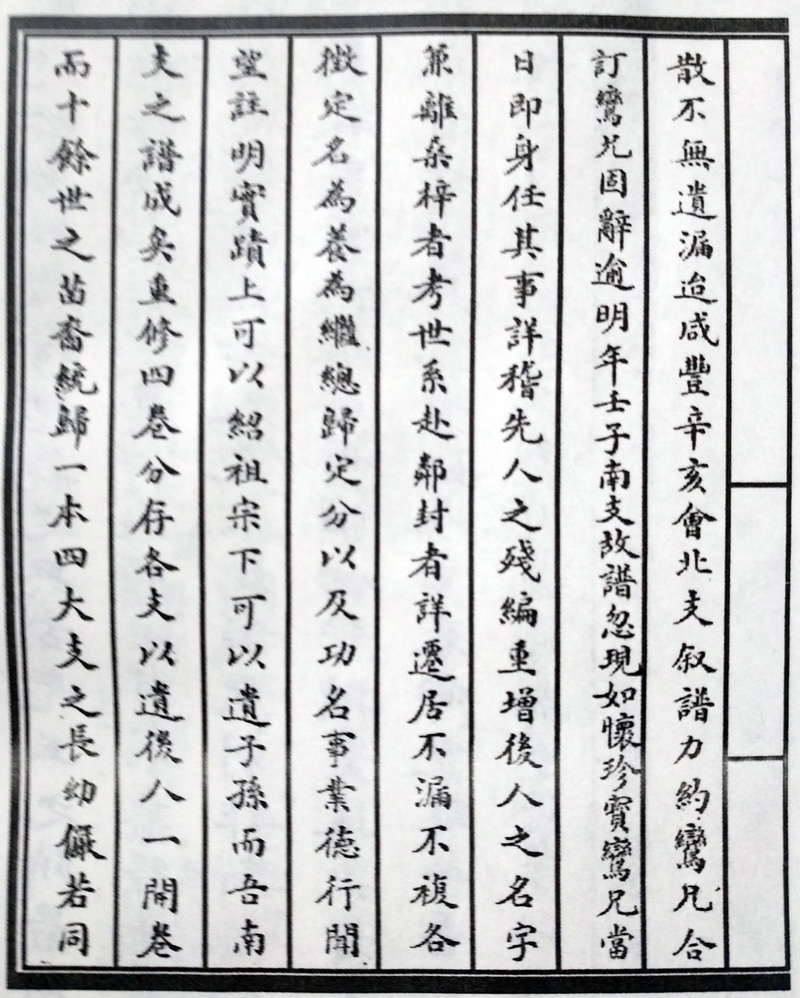 散不無遺漏迨咸豐辛亥會北支叙譜力約鸞兄合
訂鸞兄固辭逾明年壬子南支故譜忽現如懷珍寶鸞兄當
日即身任其事詳稽先人之殘編重增後人之名字
兼離桑梓者考世系赴鄰封者詳遷居不漏不複各
徴定名為養為繼總歸定分以及功名事業德行聞
望註明實蹟上可以紹祖宗下可以遺子孫而吾南
支之譜成矣重修四卷分存各支以遺後人一開卷
而十餘世之苗裔統歸一本四大支之長幼儼若同